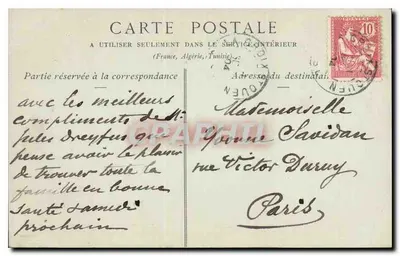 CARTE POSTALE
A UTILISER SEULEMENT DANS LE SERVICE INTÉRIEUR
(France, Algérie, Tunisie)
Partie réservée à la correspondance
Adresse du destinataire
avec les meilleurs
compliments de Mr
Jules Dreyfus qui
pense avoir le plaisir
de trouver toute la
famille en bonne
santé samedi
prochain
Mademoiselle
Yvonne Savidan
rue Victor Duruy
Paris
10
04
OUEN